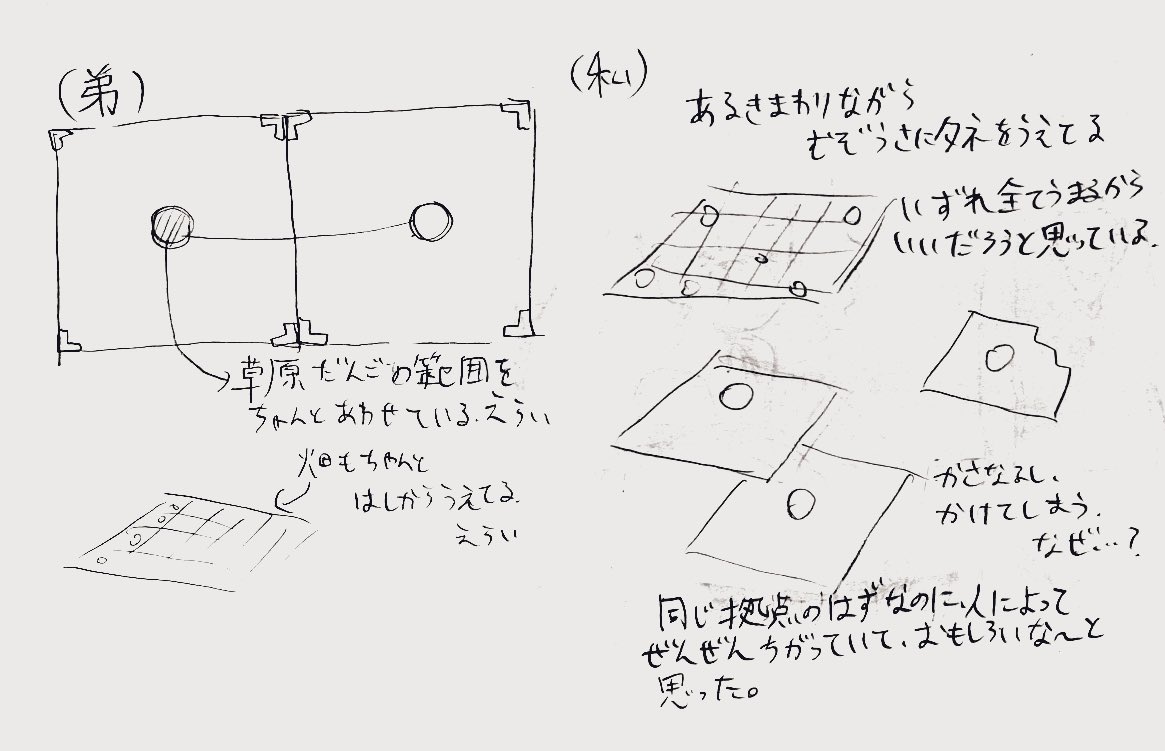 (弟)
草原だんごの範囲を
ちゃんとあわせている。えらい
畑もちゃんと
はしからうえてる。
えらい
(私)
あるきまわりながら
むぞうさにタネをうえてる
いずれ全てうまるから
いいだろうと思っている。
かさなるし、
かけてしまう。
なぜ…?
同じ拠点のはずなのに、人によって
ぜんぜんちがっていて、おもしろいな〜と
思った。